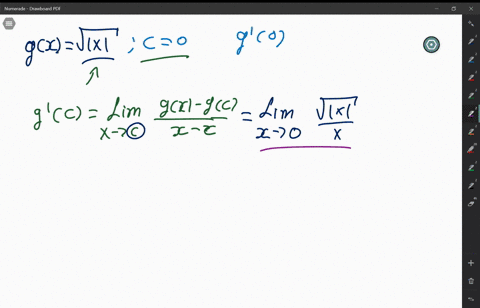 Numerade - Drawboard PDF
g(x) = √|x| ; C = 0 g'(0)
g'(c) = Lim x→c g(x) - g(c) / x - c = Lim x→0 √|x| / x